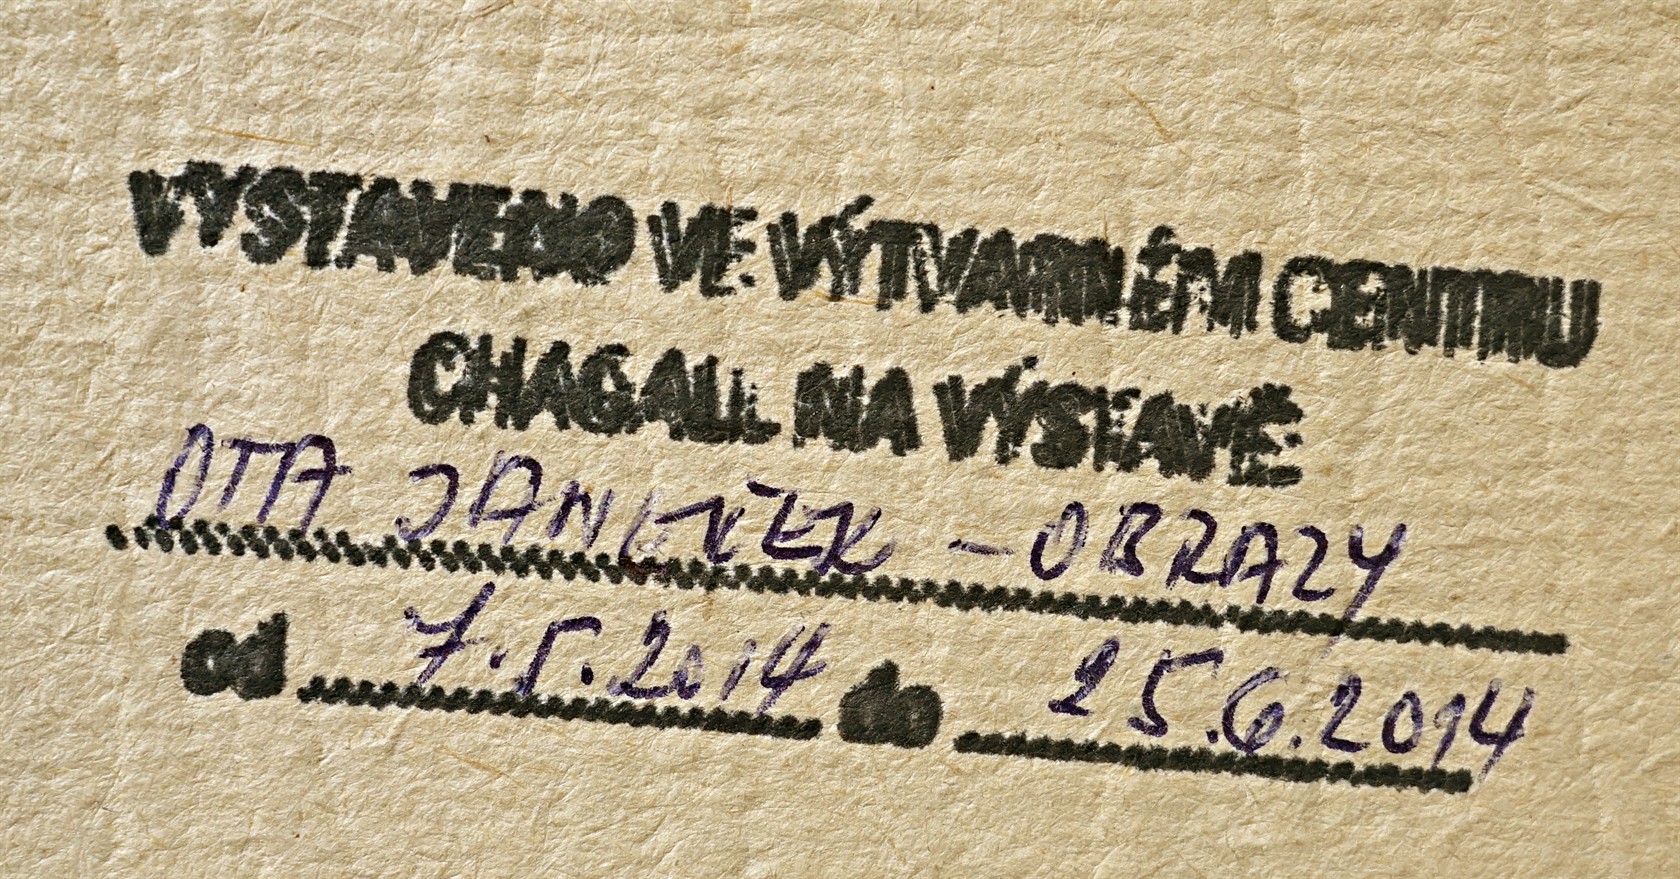 VYSTAVENO VE VÝTVARNÉM CENTRU
CHAGALL NA VÝSTAVĚ
OTA JANEČEK - OBRAZY
od 7.5.2014 do 25.6.2014